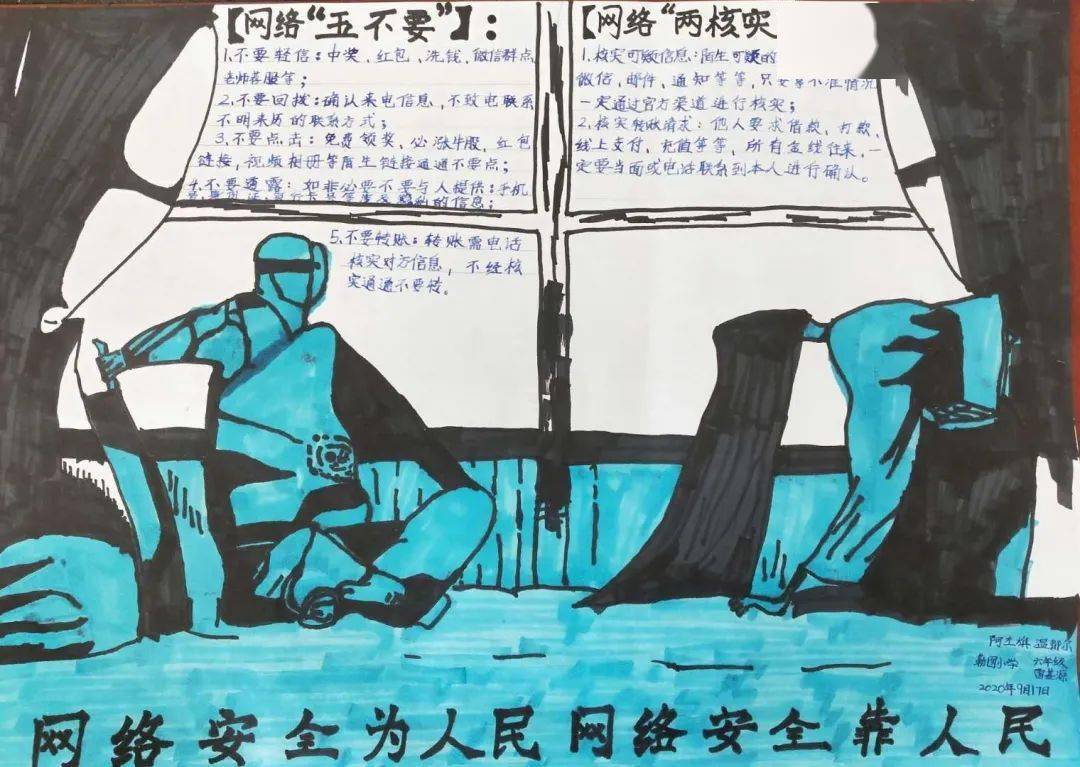 【网络“五不要”】：
1.不要轻信：中奖、红包、洗钱、微信群点
老师客服等；
2.不要回拨：确认来电信息，不致电联系
不明来历的联系方式；
3.不要点击：免费领奖、必涨牛股、红包
链接，视频相册等陌生链接通通不要点；
4.不要透露：如非必要不要与人提供：手机
的信息；
5.不要转账：转账需电话
核实对方信息，不经核
实通通不要转。
【网络“两核实
1.核实可疑信息：陌生可疑的
微信，邮件、通知等等，只要拿不准情况
一定通过官方渠道进行核实；
2.核实转账请求：他人要求借款、打款、
线上支付、充值等等，所有金钱往来，一
定要当面或电话联系到本人进行确认。
阿左旗 温都尔
勒图小学 六年级
2020年9月17日
网络安全为人民 网络安全靠人民